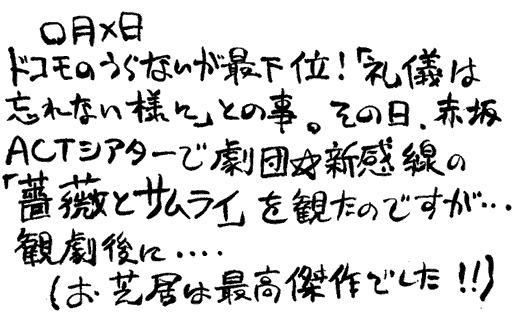 〇月×日
ドコモのうらないが最下位！「礼儀は
忘れない様に」との事。その日、赤坂
ACTシアターで劇団☆新感線の
「薔薇とサムライ」を観たのですが…
観劇後に‥‥
(お芝居は最高傑作でした!!)